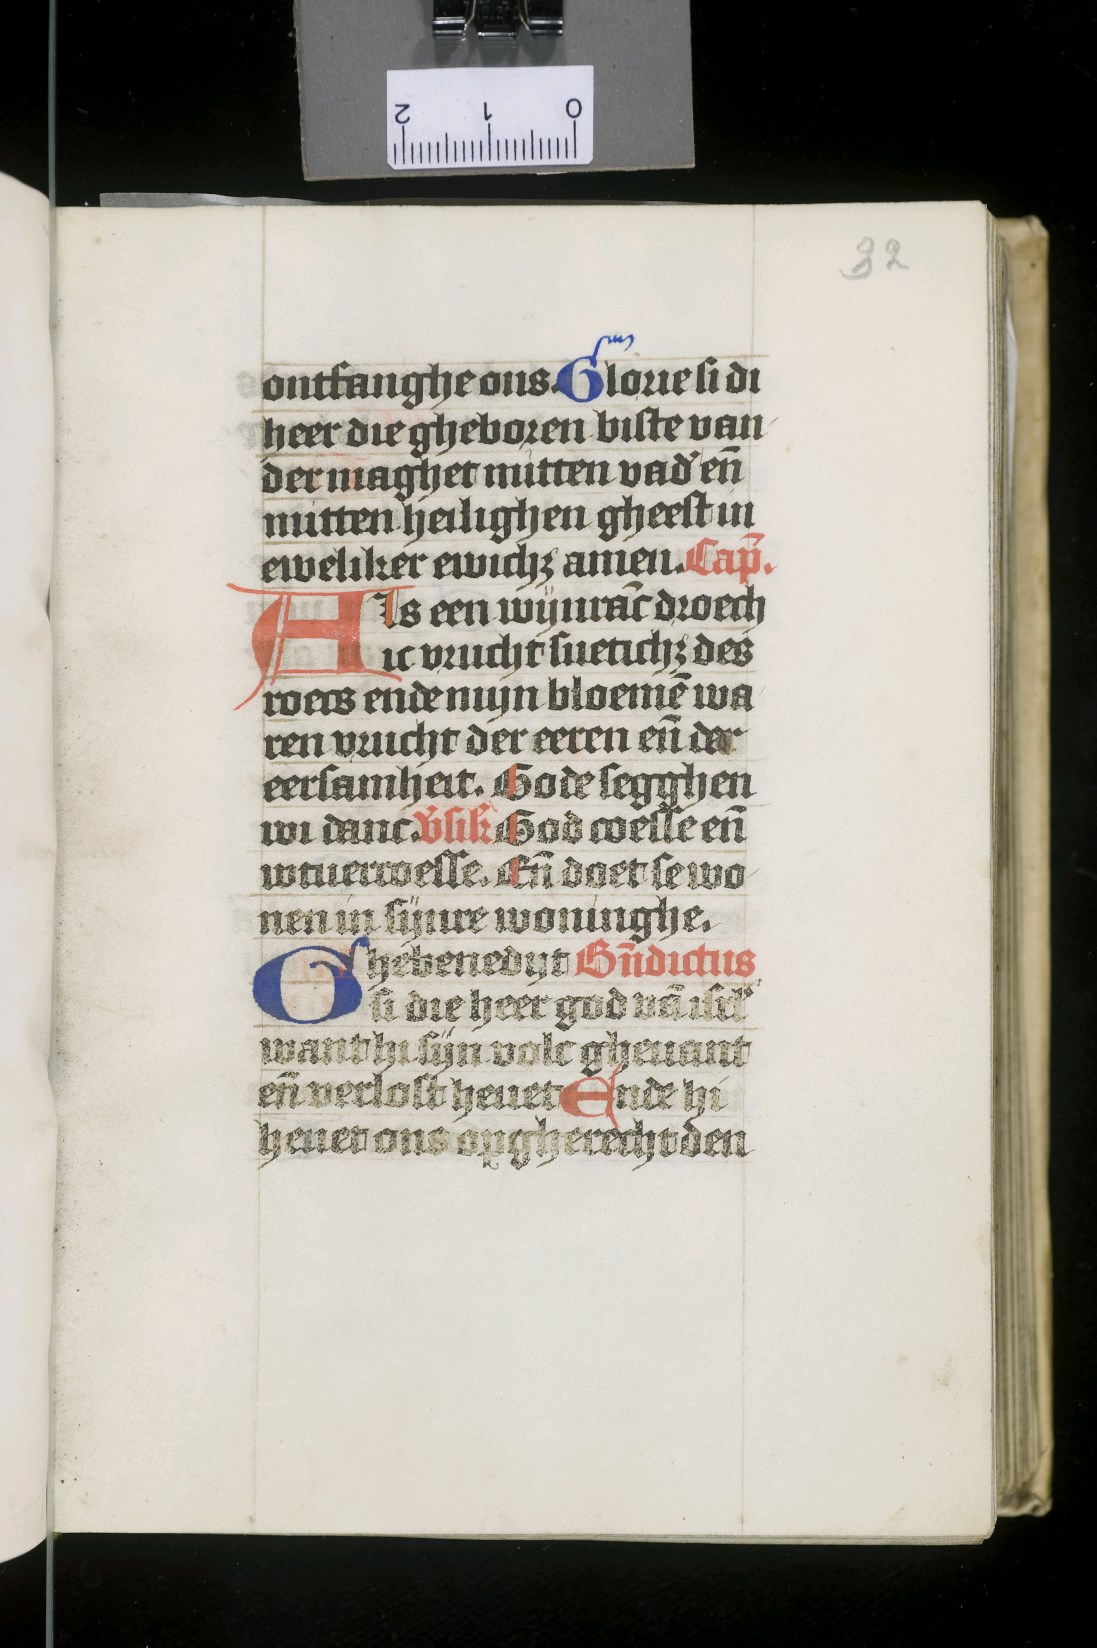 2 1 0
32
ontfanghe ons. Glorie si di
heer die gheboren biste van
der maghet mitten vad' en̄
mitten heilighen gheest in
eweliker ewichꝫ amen. Cap̄.
Als een wijnrāc droech
ic vrucht suetichꝫ des
roecs ende mijn bloemē wa
ren vrucht der eeren en̄ der
eersamheit. Gode segghen
wi danc. v̄sik God coesse en̄
wtuercoesse. En̄ doet se wo
nen in sijnre woninghe.
Ghebenedijt Bn̄dictus
si die heer god vā isrl'
want hi sijn volc gheuant
en̄ verlost heuet Ende hi
heuet ons opgherecht den